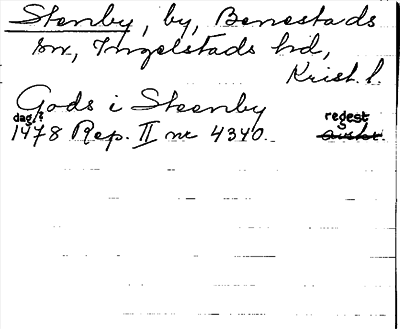 Stenby, by, Benestads
sn, Ingelstads hd,
Krist. l.
Gods i Steenby
dag.?
regest
1478 Rep. II nr 4340.